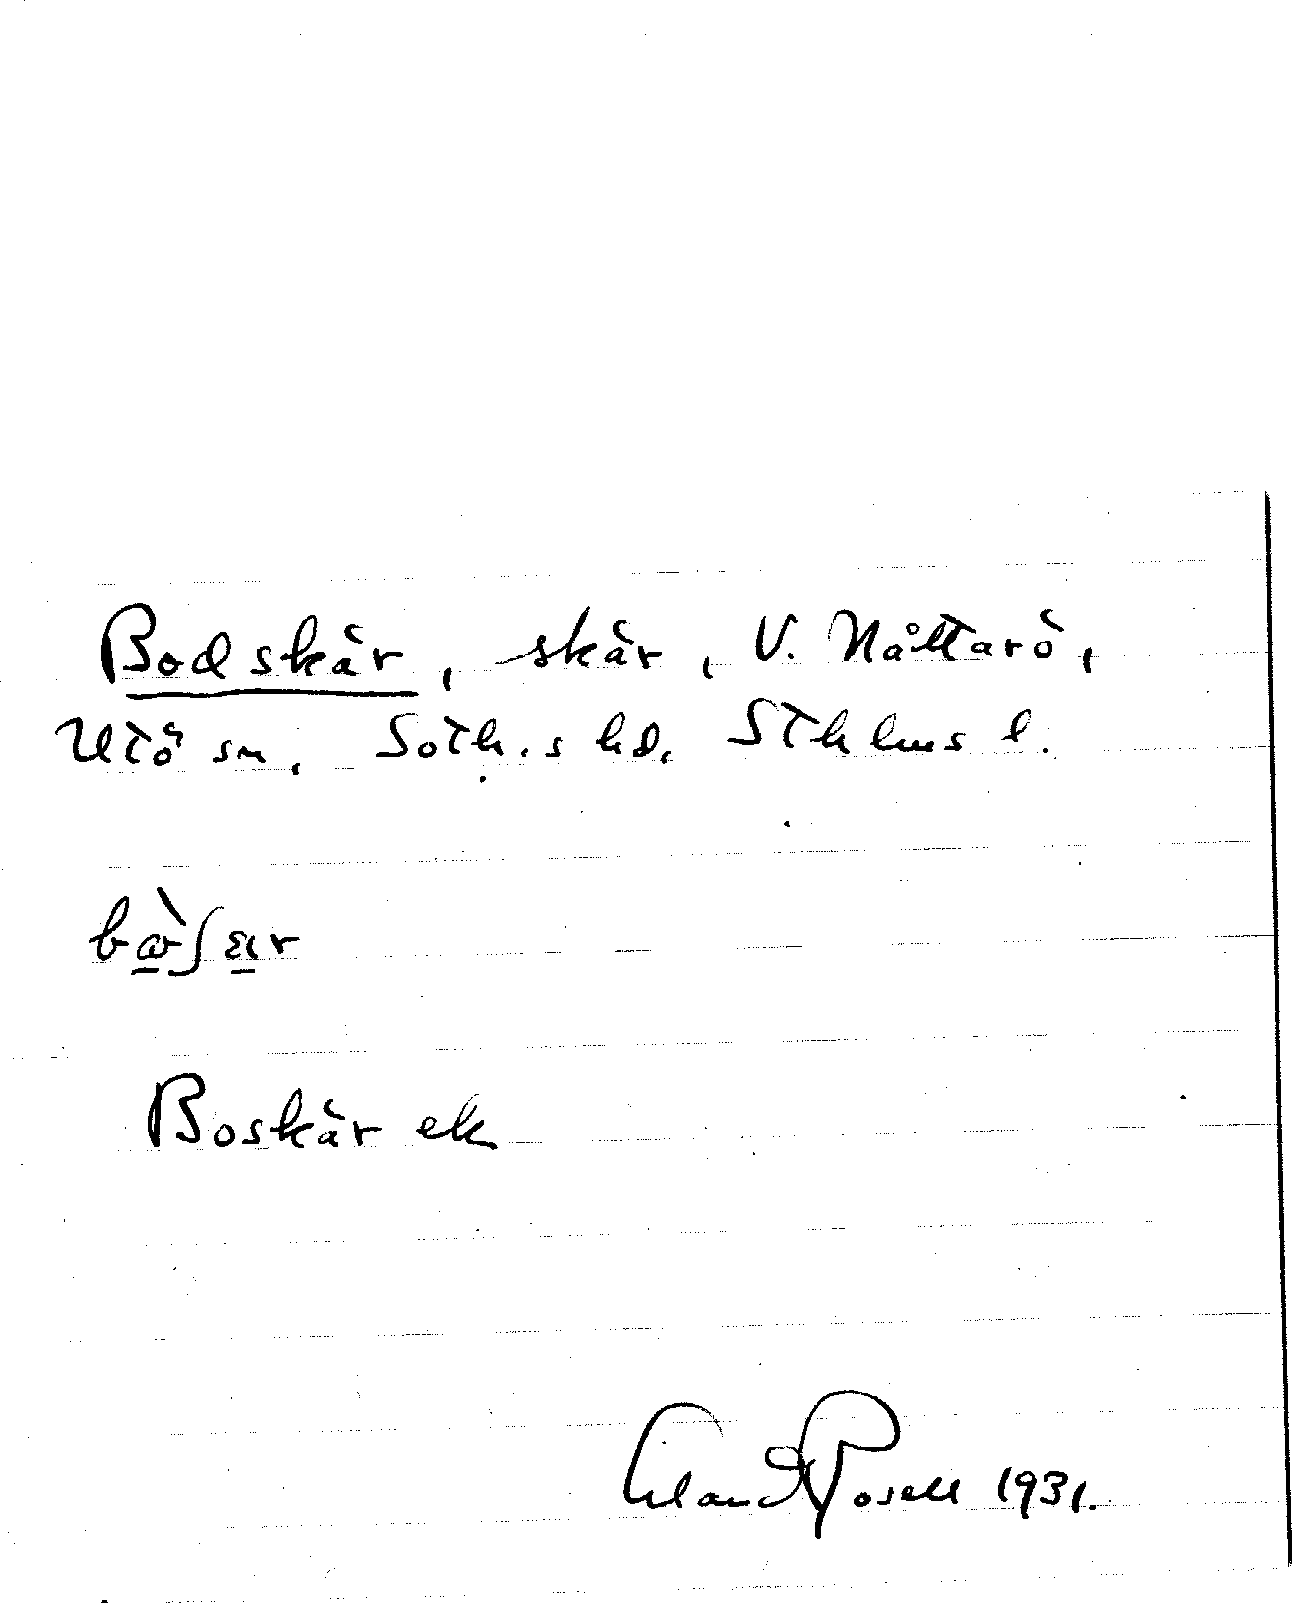 Bodskär, skär, V. Nåttarö,
Utö sn, Soth.s hd. Sthlms l.
bὼʃär
Boskär ek
Erland Rosell 1931.